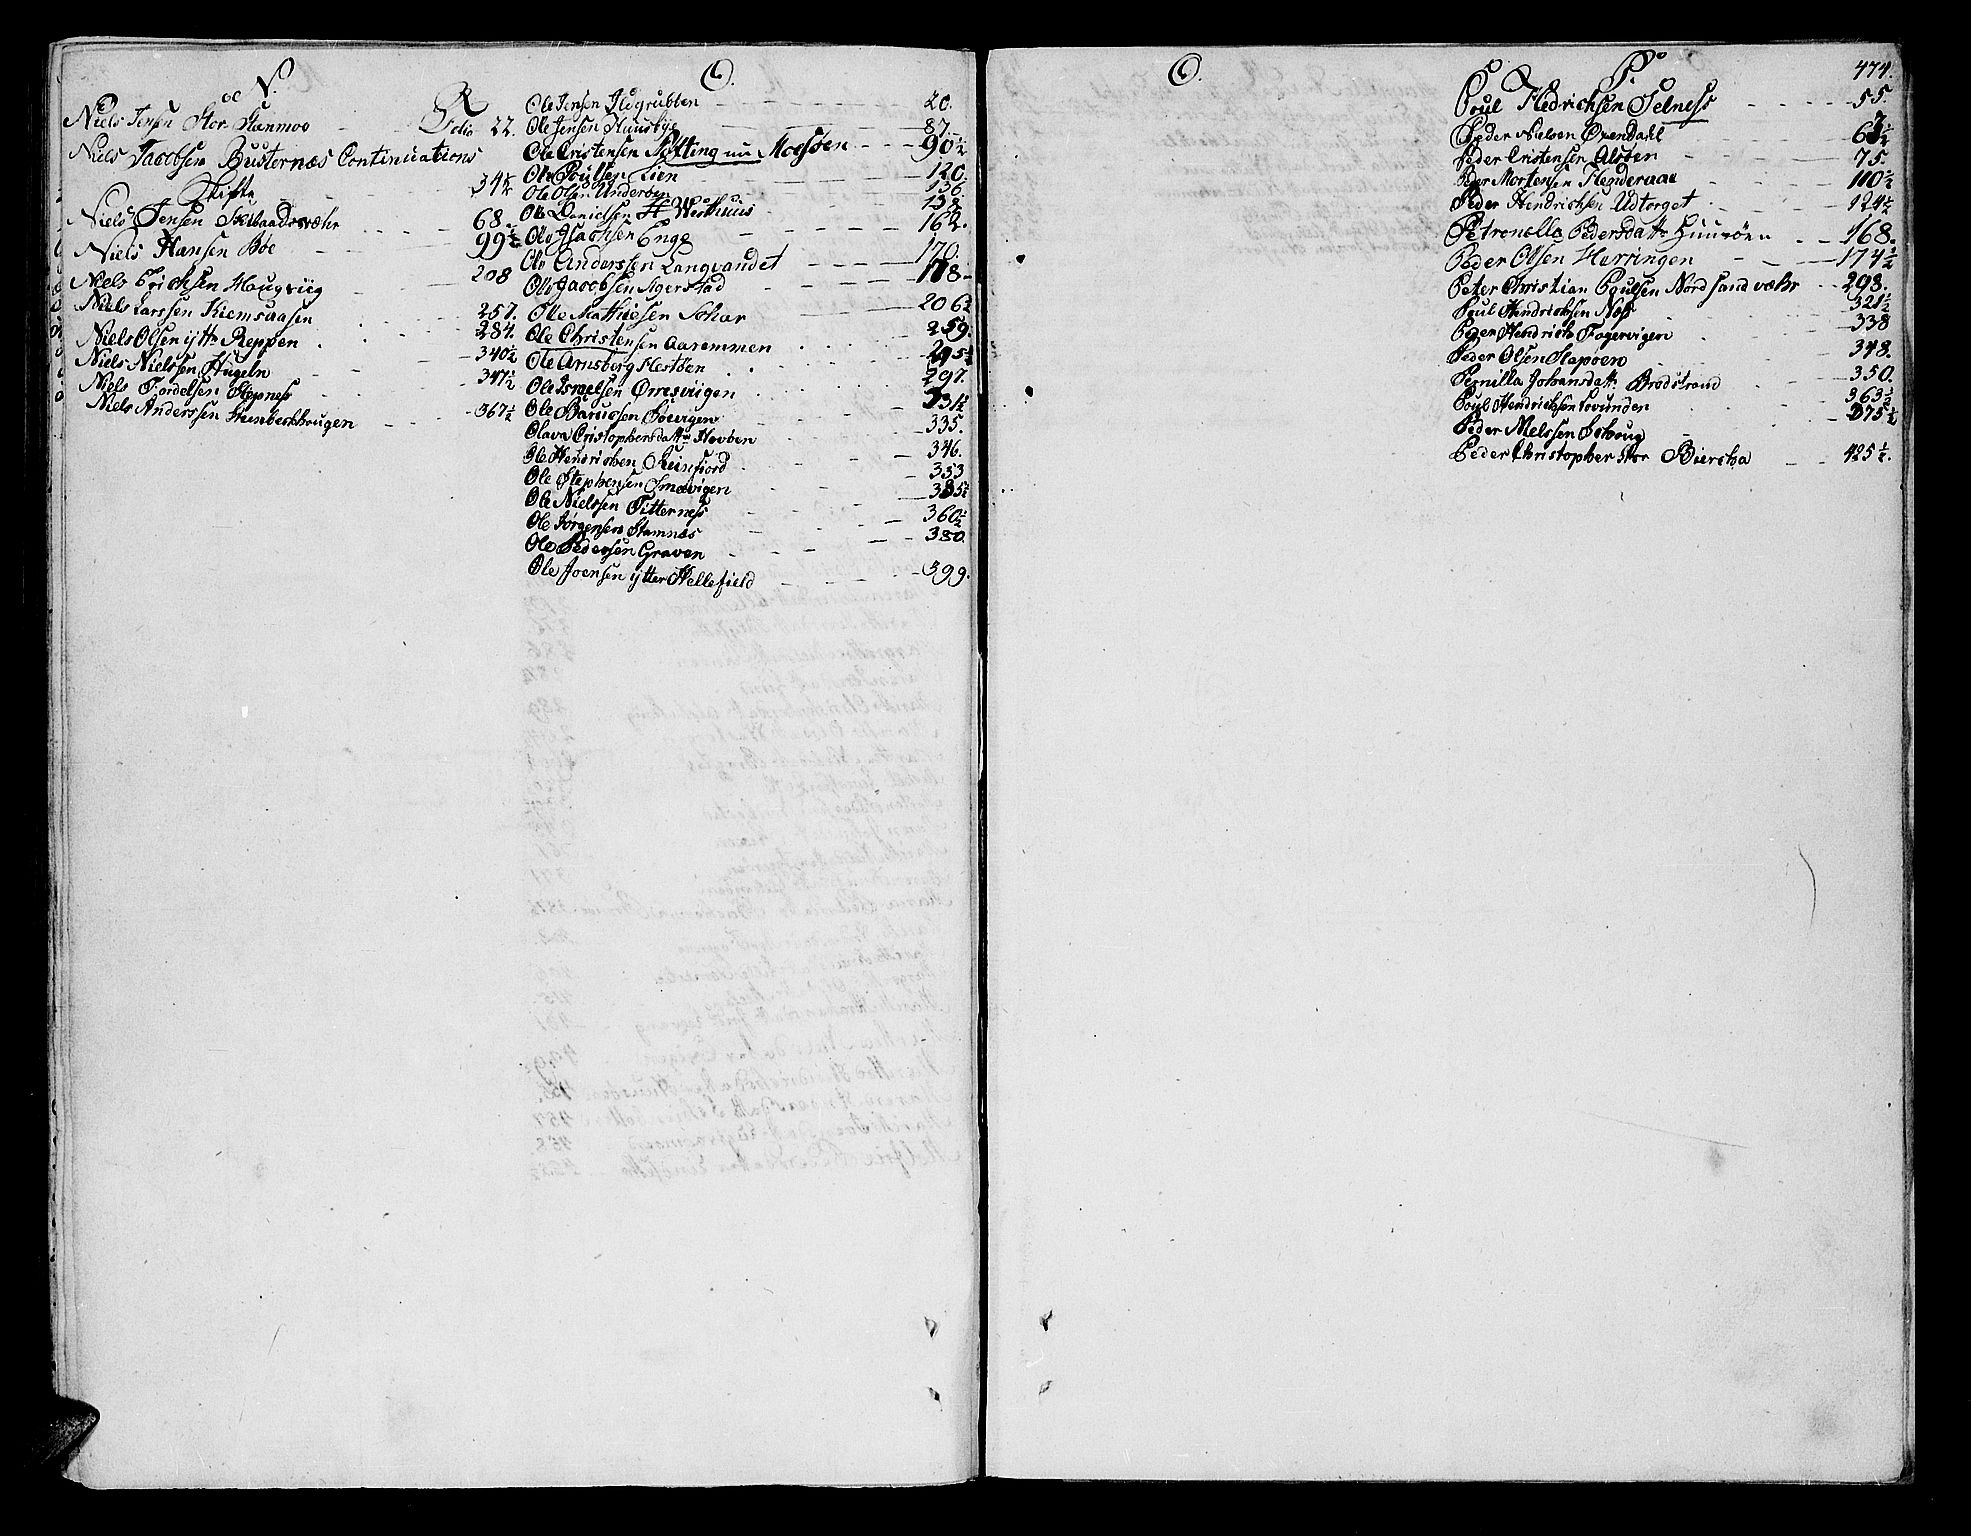 N.
Niels Jensen Stor Stanmoo Folio 22.
Niels Jacobsen Busternæs Continuations
Skifte 34½
Niels Jensen Skibaadsværhr 68.
Niels Hansen Bøe 99½
Niels Erichsen Haugviig 208
Niels Larssen Kiemsaasen 257.
Niels Olsen ytt Reppen 284.
Niels Nielssen Hugeln 340½
Niels Tordelsen Stepness 347½
Niels Anderssen 367½
O.
Ole Jensen Ildgrubben 20.
Ole Jensen Huusbye 87
Ole Cristensen Notting nu Moesøen 90½
Ole Poulsen Lien 120.
Ole Olsen Undersøen 136
Ole Danielsen Westhuus 138
Ole Isachsen Enge 162.
Ole Anderssen Langvandet 170.
Ole Jacobsen Agerstad 178
Ole Mathiesen Sohar 206½
Ole Christensen Aaremmen 259.
Ole Arnsborg Hestøen
Ole Israelsen Ørresviigen 297.
Ole Barussen Søevigen 331½
Olava Cristophersdatt Hovden 335.
Ole Henrichsen Reinfiord 346.
Ole Stephensen Smævigen 353
Ole Nielssen Titterness
Ole Jørgensen Stamnes 360½
Ole Pedersen Graven 380.
Ole Joensen ytter Hellefield 399.
O.
P.
474.
Poul Hedrichsen Selness 55.
Peder Nielsen Øxendahl
Peder Cristensen Alsøen 75.
Peder Mortensen Henderaae 110½
Peder Hendrichsen Udtorget 124½
Petronelle Pedersdatt Huusøen 168.
Peder Olsen Herringen 174½
Peter Christian Poulsen Nord Sandværhr 298.
Poul Hendrichsen Næss 321½
Peder Hendrichs Fagervigen 338
Peder Olsen Stapøen 348.
Pernilla Johansdatt Brodstrand 350.
Poul Hendrichsen Lovunden 363½
Peder Nielssen 375½
Peder Christopher Stor Biercka 425½.